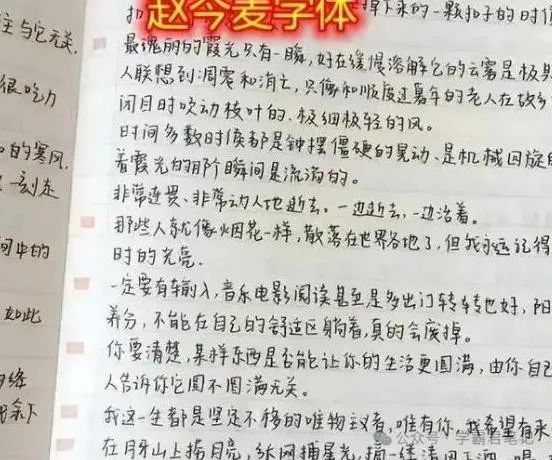 赵今麦字体
扣 掉下来的一颗扣子的时候
最瑰丽的霞光只有一瞬,好在缓慢溶解它的云雾是极具
人联想到凋零和消亡,只像和顺度过暮年的老人在故乡
闭目时吹动枝叶的、极细极轻的风。
时间多数时候都是钟摆僵硬的晃动、是机械回旋
着霞光的那个瞬间是流淌的。
非常连贯、非常动人地逝去。一边逝去,一边活着。
那些人就像烟花一样,散落在世界各地了,但我永远记得
时的光亮.
一定要有输入,音乐电影阅读甚至是多出门转转也好,阳
养分,不能在自己的舒适区躺着,真的会废掉。
你要清楚,某样东西是否能让你的生活更圆满,由你自己
人告诉你它圆不圆满无关。
我这一生都是坚定不移的唯物主义者,唯有你,我希望有来
在月牙山上捞月亮,织网捕星光,
主与它无关.
很吃力
的寒风.
一刻走
间中的
如此
余下
公众号·学霸君笔记